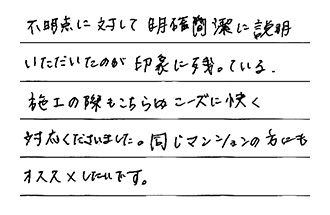 不明点に対して明確簡潔に説明
いただいたのが印象に残っている。
施工の際もこちらのニーズに快く
対応くださいました。同じマンションの方にも
オススメしたいです。